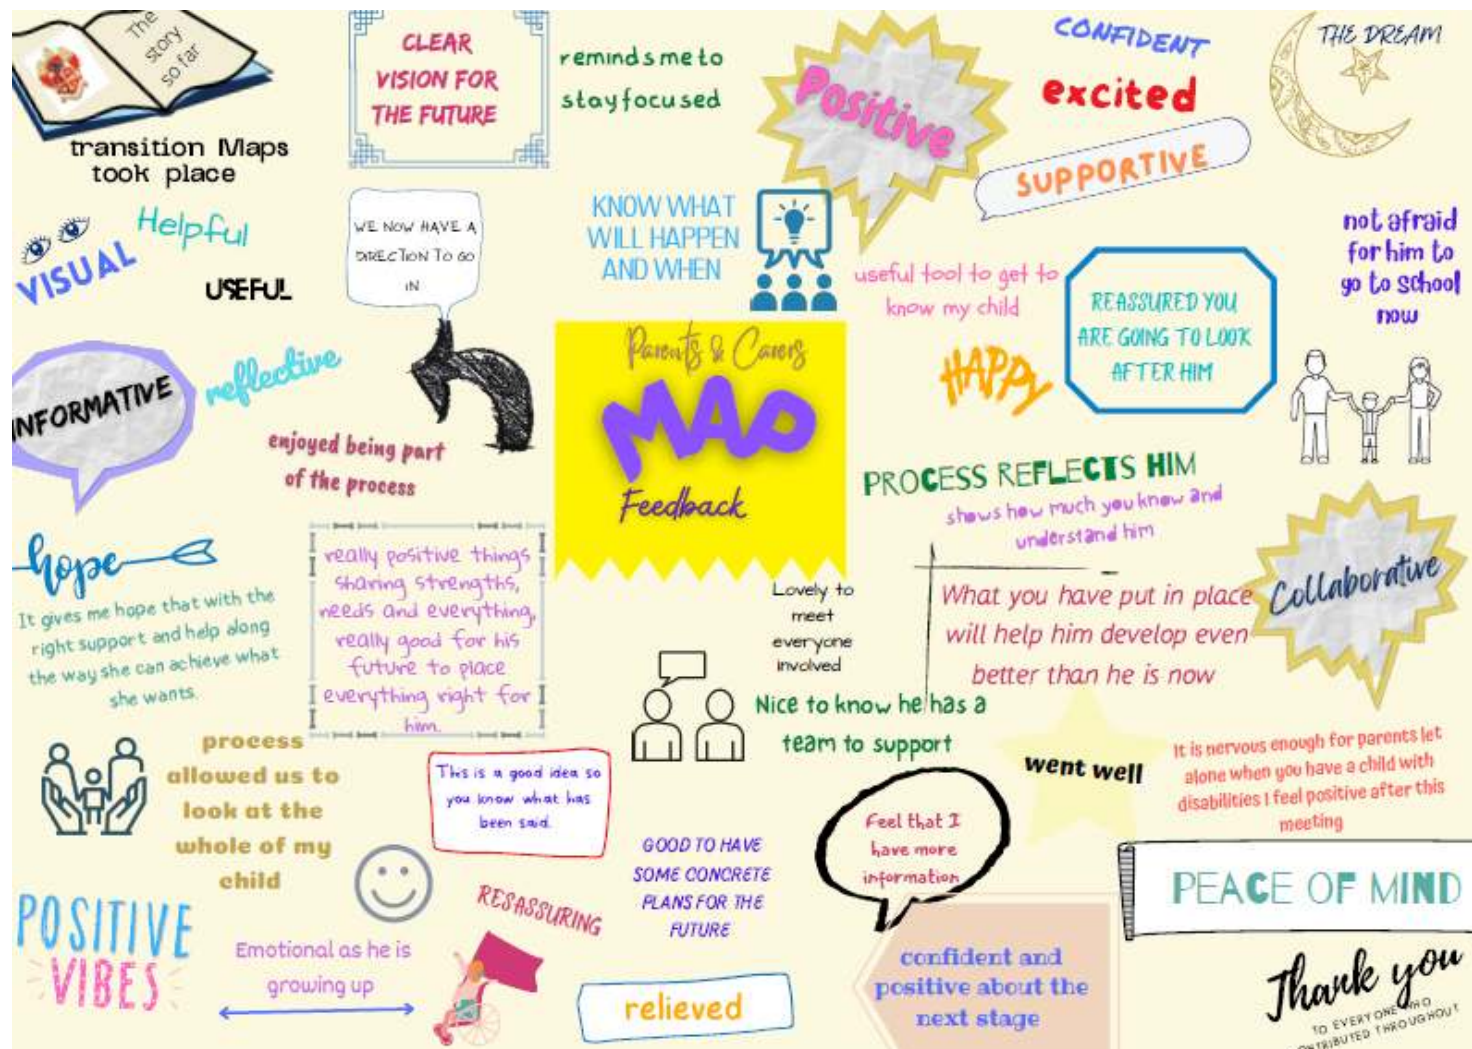 The
story
so far
transition Maps
took place
CLEAR
VISION FOR
THE FUTURE
reminds me to
stay focused
Positive
CONFIDENT
excited
SUPPORTIVE
THE DREAM
VISUAL
Helpful
USEFUL
WE NOW HAVE A
DIRECTION TO GO
IN
KNOW WHAT
WILL HAPPEN
AND WHEN
useful tool to get to
know my child
REASSURED YOU
ARE GOING TO LOOK
AFTER HIM
not afraid
for him to
go to school
now
INFORMATIVE
reflective
enjoyed being part
of the process
Parents & Carers
MAP
Feedback
HAPPY
PROCESS REFLECTS HIM
shows how much you know and
understand him
Collaborative
hope
It gives me hope that with the
right support and help along
the way she can achieve what
she wants.
really positive things
sharing strengths,
needs and everything,
really good for his
future to place
everything right for
him.
Lovely to
meet
everyone
involved
What you have put in place
will help him develop even
better than he is now
Nice to know he has a
team to support
went well
It is nervous enough for parents let
alone when you have a child with
disabilities I feel positive after this
meeting
process
allowed us to
look at the
whole of my
child
This is a good idea so
you know what has
been said.
GOOD TO HAVE
SOME CONCRETE
PLANS FOR THE
FUTURE
Feel that I
have more
information
PEACE OF MIND
POSITIVE
VIBES
Emotional as he is
growing up
RESASSURING
relieved
confident and
positive about the
next stage
Thank you
TO EVERYONE WHO
CONTRIBUTED THROUGHOUT